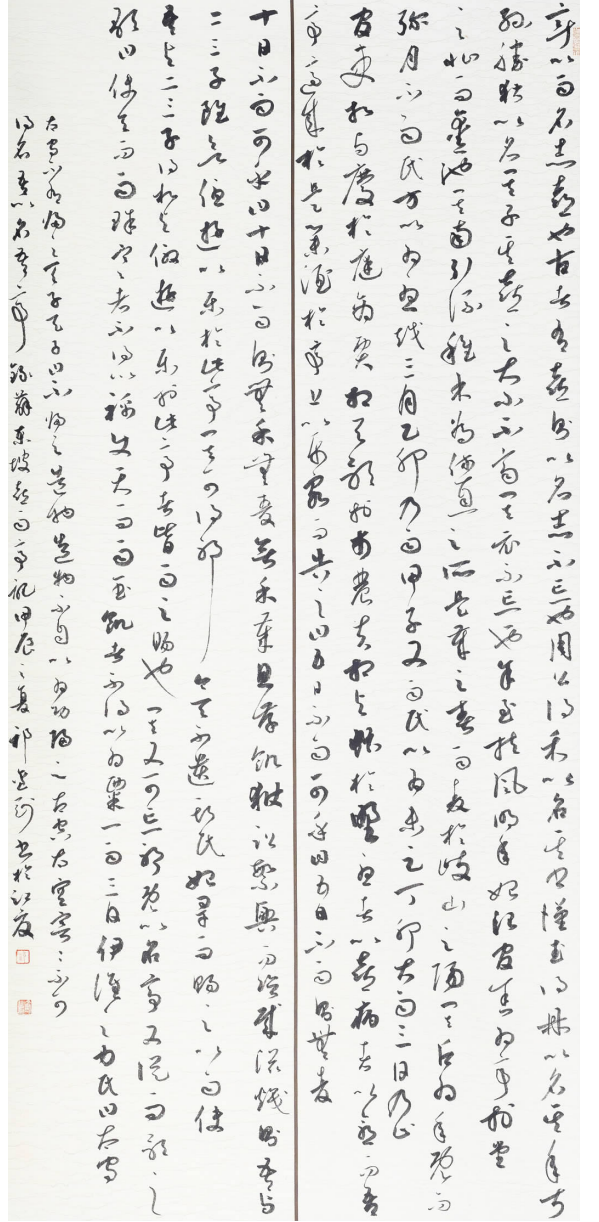 亭以雨名志喜也古者有喜則以名志不忘也周公得禾以名其書漢武得鼎以名其年叔
孫勝狄以名其子其喜之大小不齊其示不忘也至扶風明年始治官舍為亭於堂
之北而鑿池其南引流種木為休息之所是歲之春雨麥於岐山之陽其占為有年既而
彌月不雨民方以為憂越三月乙卯乃雨甲子又雨民以為未足丁卯大雨三日乃止
官吏相與慶於庭商賈相與歌於市農夫相與忭於野憂者以喜病者以愈而吾
亭適成於是舉酒於亭上以屬客而告之曰五日不雨可乎曰五日不雨則無麥
十日不雨可乎曰十日不雨則無禾無麥無禾歲且荐飢獄訟繁興而盜賊滋熾則吾與
二三子雖欲優遊以樂於此亭其可得耶今天不遺斯民始旱而賜之以雨使
吾與二三子得相與優遊以樂於此亭者皆雨之賜也其又可忘耶既以名亭又從而歌之
歌曰使天而雨珠寒者不得以為襦使天而雨玉飢者不得以為粟一雨三日伊誰之力民曰太守
太守不有歸之天子天子曰不歸之造物造物不自以為功歸之太空太空冥冥不可
得名吾以名吾亭 錄蘇東坡喜雨亭記甲辰之夏祁書於江夏